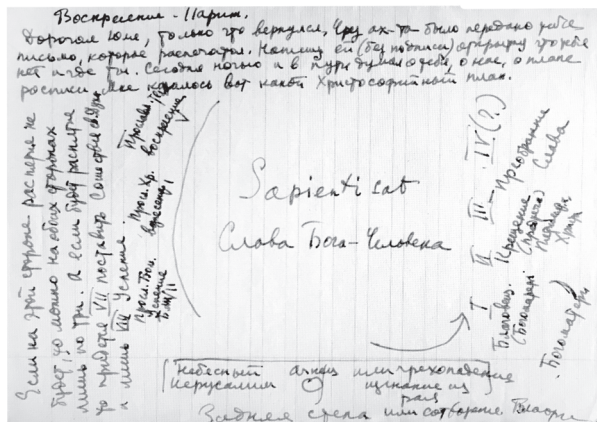 Воскресение - Париж.
Дорогая Юля, только что вернулся, было передано твое
письмо, которое распечатал. Напишу ей (без подписи) открытку что тебя
нет и где ты. Сегодня ночью и в пути думал о тебе, о нас, о плане
росписи. Мне казалось вот какой Христософийный план.
Если на этой стороне распятия не
будет, то можно на обеих сторонах
лишь по три. А если будет распятие
то придется VII поставить Сошествие св. Духа
а лишь VIII Успение.
воскресение
Просл. Хр.
вознесение
Просл. Бог.
успение
Sapienti sat
Слава Бого-Человека
I II III IV (?)
Благовещ.
(Богоматери)
Крещение
Христа
Преображение
Слава
Богоматери
Небесный Агнец или грехопадение
Иерусалим изгнание из
рая
Задняя стена или сотворение